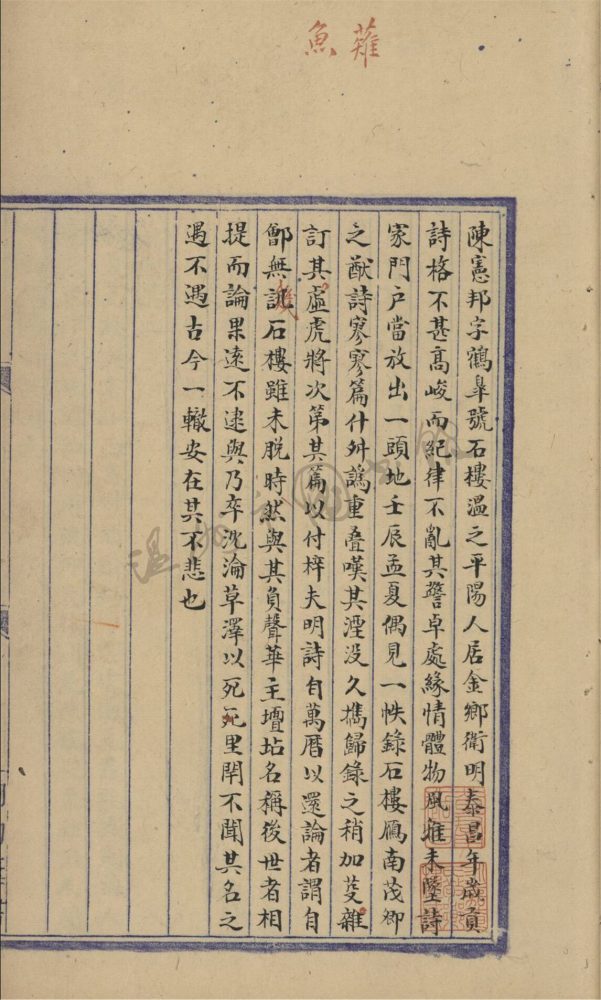 薙
魚
陳憲邦字鶴臯號石樓溫之平陽人居金鄉衛明泰昌年歲貢
詩格不甚高峻而紀律不亂其警卓處緣情體物風雅未墜詩
家門户當放出一頭地壬辰孟夏偶見一帙錄石樓鴈南茂卿
之猷詩寥寥篇什舛譌重叠嘆其湮没久攜歸錄之稍加芟雜
訂其虛虎將次第其篇以付梓夫明詩自萬曆以還論者謂自
鄶無譏石樓雖未脱時然與其負聲華主壇坫名稱後世者相
提而論果遠不逮與乃卒沈淪草澤以死死里閈不聞其名之
遇不遇古今一轍安在其不悲也